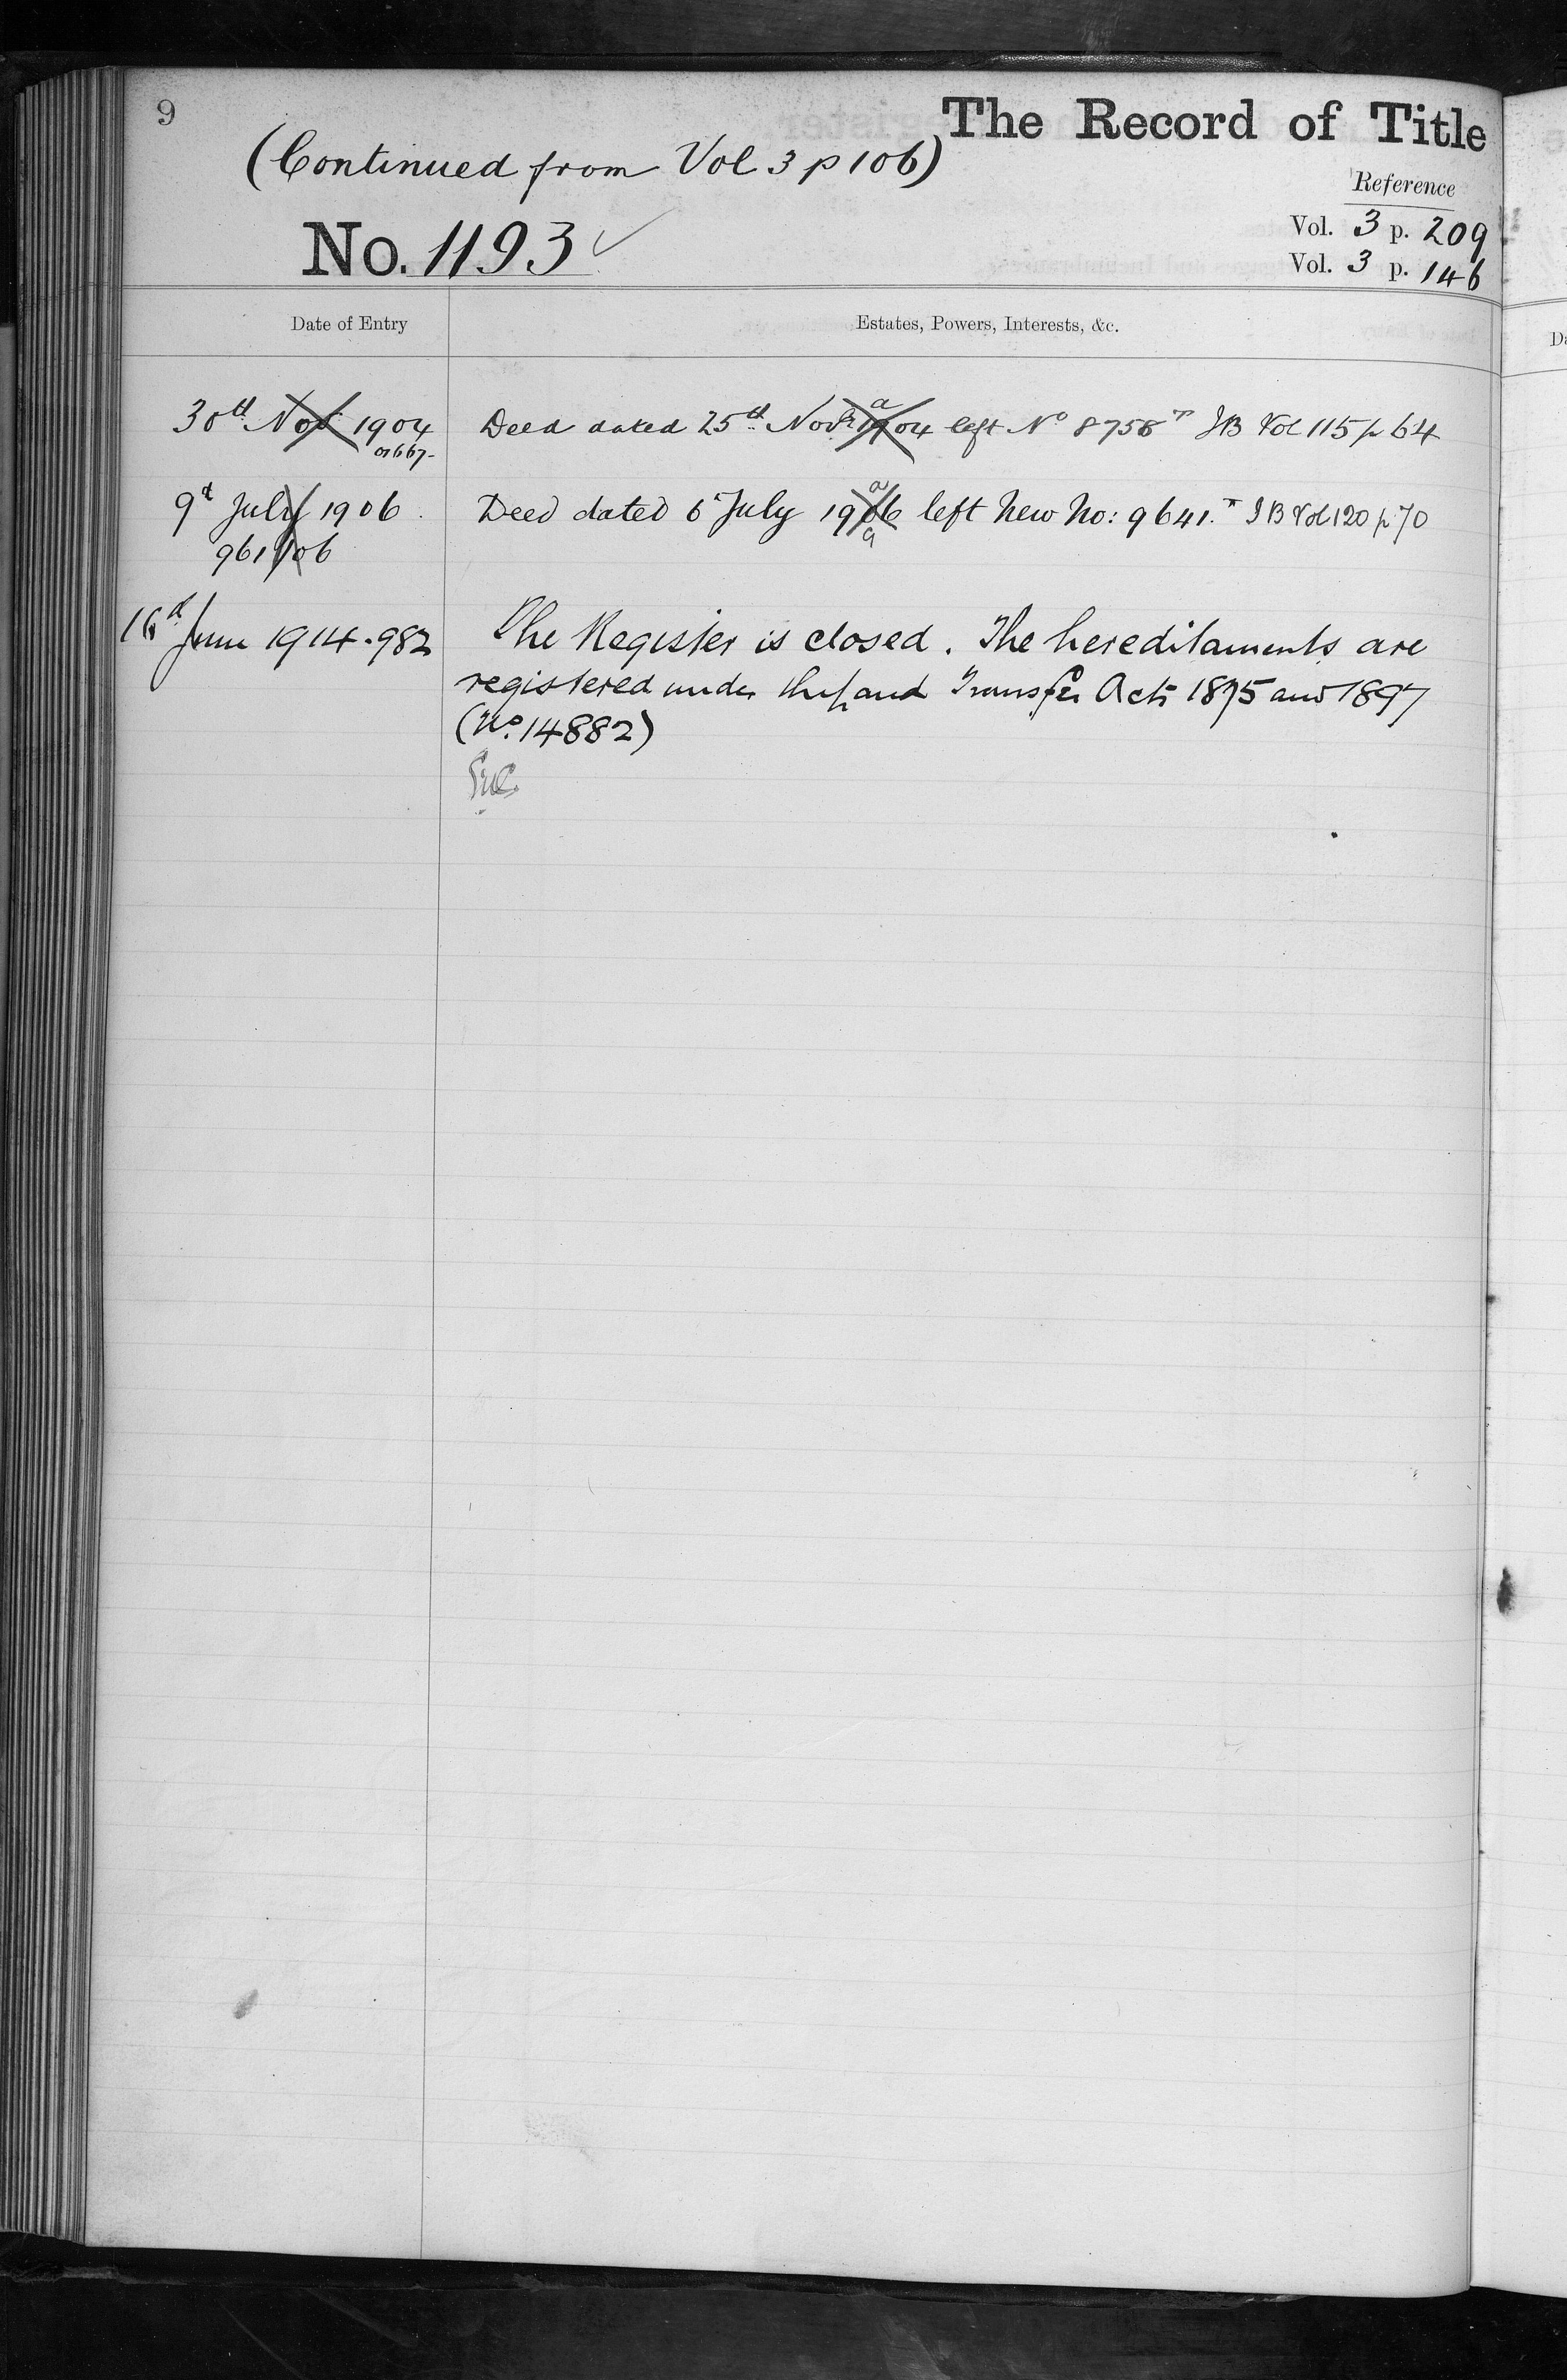 9
The Record of Title
(Continued from Vol. 3 p 106)
Reference
No. 1193
Vol. 3 p. 209
Vol. 3 p. 146
Date of Entry
Estates, Powers, Interests, &c.
30th Nov 1904
Deed dated 25th Novr 1904 left No 8758 IB Vol 115 p 64
9th July 1906
961/06
Deed dated 6 July 1906 left New No: 9641. IB Vol 120 p 70
16th June 1914.982
The Register is closed. The hereditaments are
registered under the Land Transfer Acts 1875 and 1897
(No. 14882)